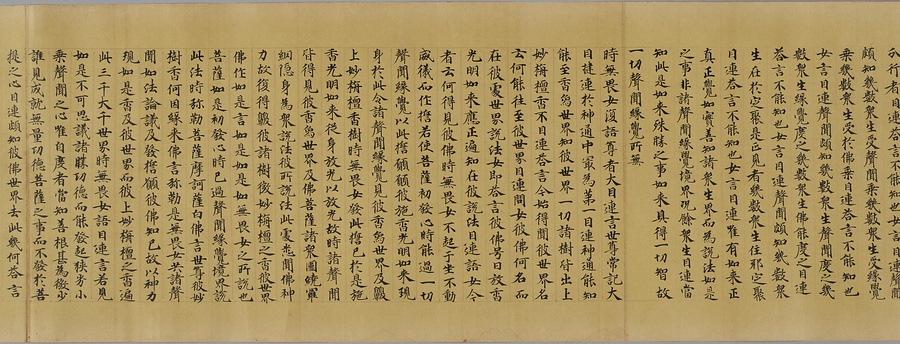 頗知幾數衆生受聲聞乘幾數衆生受緣覺
乘幾數衆生受於佛乘目連答言不能知也
女言目連聲聞頗知幾數衆生聲聞度之幾
數衆生緣覺度之幾數衆生佛能度之目連
答言不能知也女言目連聲聞頗知幾數衆
生在於定聚是正見者幾數衆生住邪定聚
目連答言不能知也女言目連唯有如來正
真正覺如實善知諸衆生界而為說法如是
之事非諸聲聞緣覺境界況餘衆生目連當
知此是如來殊勝之事如來具得一切智故
一切聲聞緣覺所無
時無畏女復語尊者大目連言世尊常記大
目揵連於神通中最為第一目連神通能知
能至香烏世界知彼世界一切諸樹皆出上
妙栴檀香不目連答言今始得聞彼世界名
云何能往至彼世界目連問女彼佛何名而
在彼處世界說法女即答言彼佛号曰放香
光明如來應正遍知在彼說法目連語女今
者云何得見彼佛時無畏女不起于坐不動
威儀而作擔若使菩薩初發心時能過一切
聲聞緣覺以此擔願願彼放香光明如來現
身於此令諸聲聞緣覺見彼香烏世界及齅
上妙栴檀香樹時無畏女發此擔已於是放
香光明如來從身放光以放光故時諸聲聞
皆得見彼香烏世界及佛菩薩諸衆圍繞羅
網隱身為衆說法彼所說法此處悉聞佛神
力故復得齅彼諸樹微妙栴檀之香彼世界
佛作如是言如是如是如無畏女之所說也
菩薩如是初發心時已過聲聞緣覺境界說
此法時弥勒菩薩摩訶薩白佛言世尊彼妙
樹香何因緣來佛言弥勒是無畏女共諸聲
聞如法論議及發擔願彼佛知已故以神力
現如是香及彼世界而彼上妙栴檀之香遍
此三千大千世界時無畏女語目連言若見
如是不可思議諸勝功德而能發起狹劣小
乘聲聞之心唯自度者當知善根甚為微少
誰見成就無量功德菩薩之事而不發於菩
提之心目連頗知彼佛世界去此幾何答言